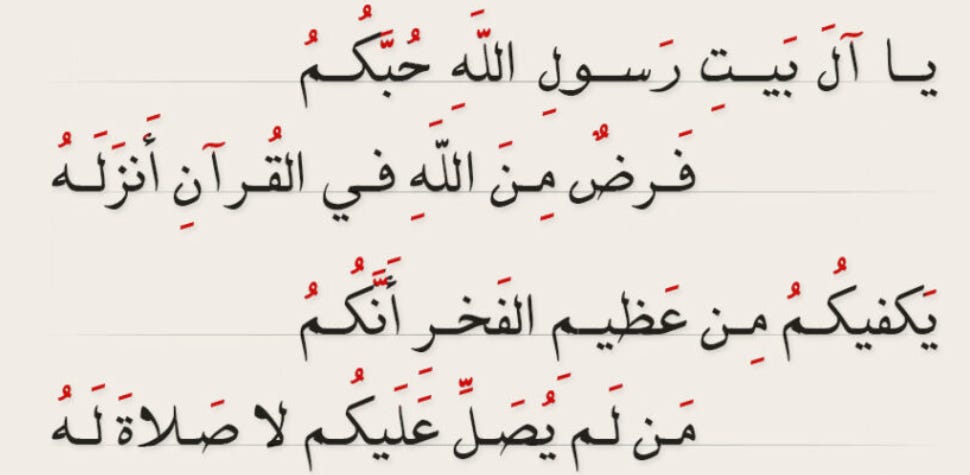 يا آلَ بَيتِ رَسولِ اللَّهِ حُبَّكُمُ
فَرضٌ مِنَ اللَّهِ في القُرآنِ أَنزَلَهُ
يَكفيكُمُ مِن عَظيمِ الفَخرِ أَنَّكُمُ
مَن لَم يُصَلِّ عَلَيكُم لا صَلاةَ لَهُ